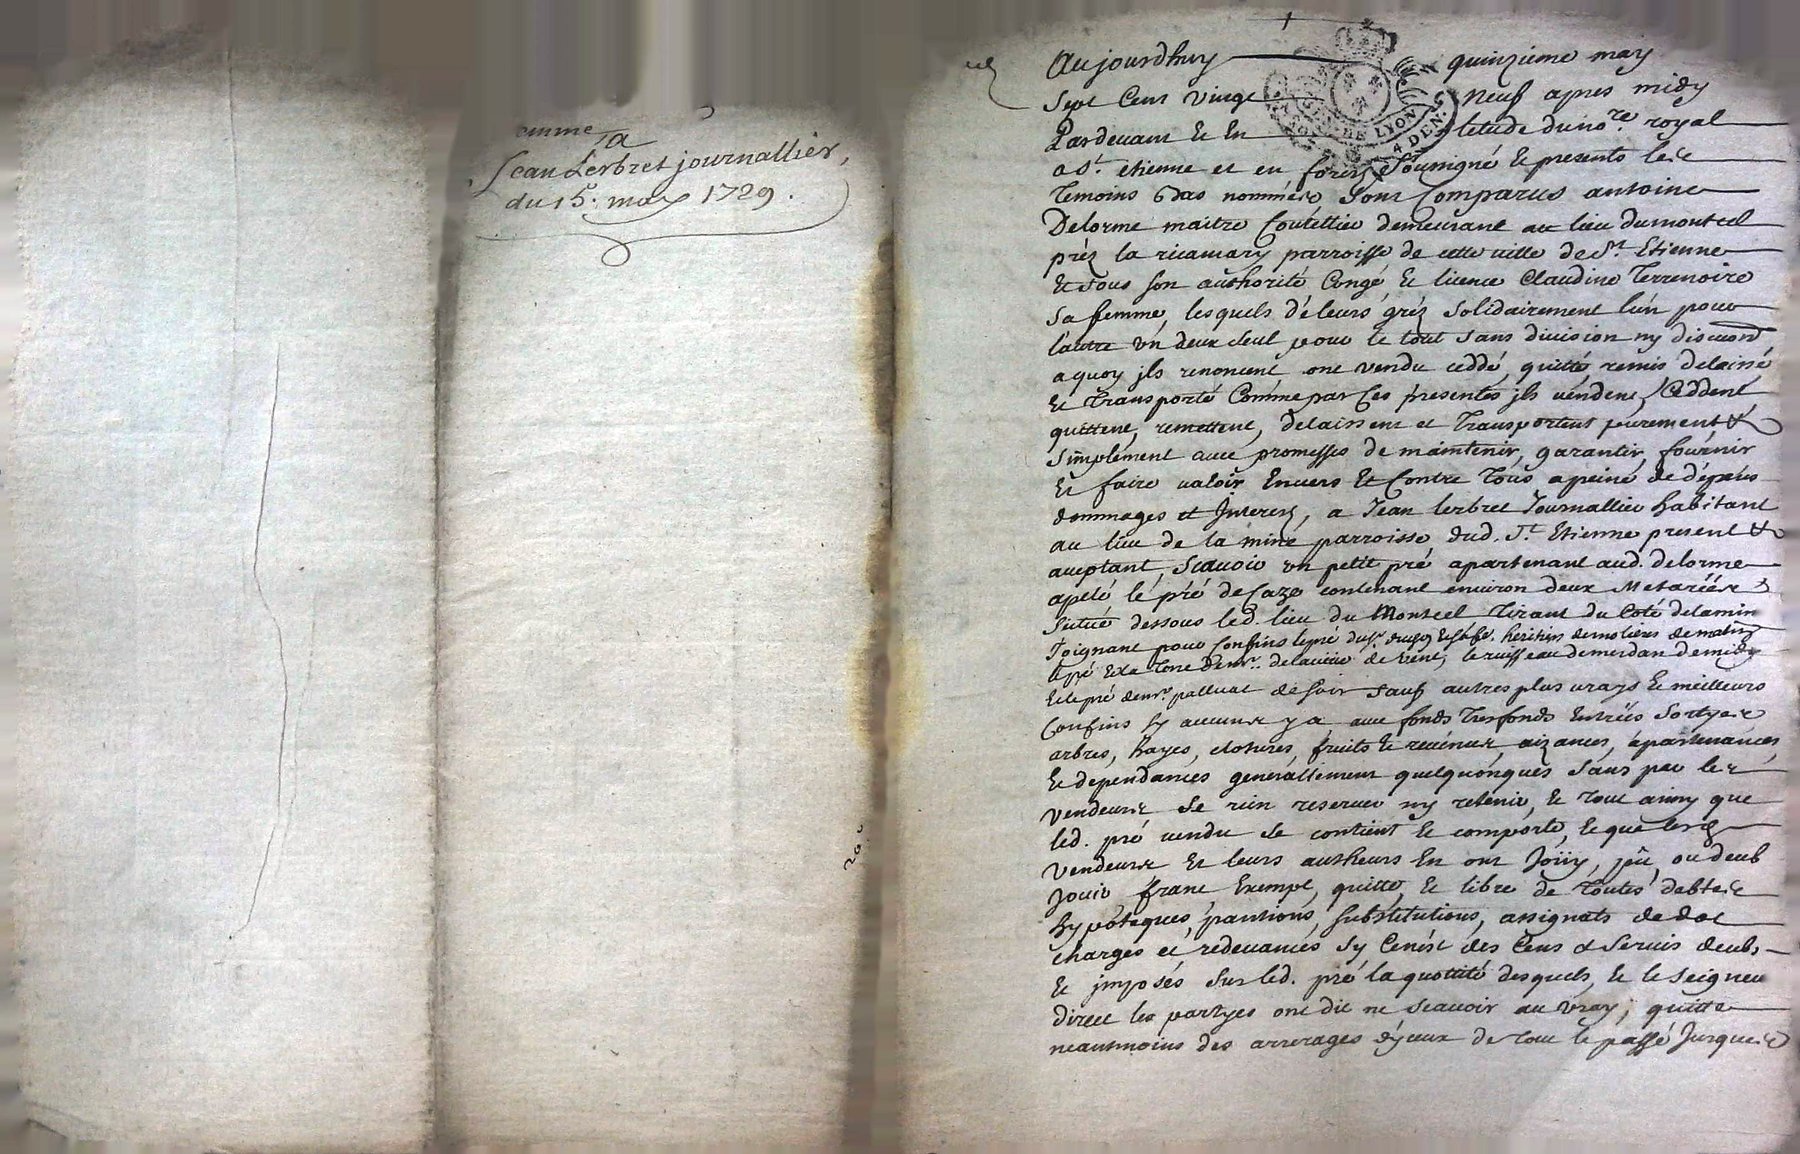 femme
a
Jean Lerbret journallier,
du 15. may 1729.
Aujourdhuy quinzieme may
sept Cent vingt neuf apres midy
Pardevant et En letude du no.re royal
a S.t etienne et en forez soussigné et presents les
temoins bas nommés sont Comparus antoine
Delorme maitre Coutellier demeurant au lieu dumontcel
préz la ricamary parroisse de cette ville de S.t Etienne
et sous son authorité Congé et licence Claudine Terrenoire
sa femme, lesquels de leurs gréz solidairement lun pour
lautre un deux seul pour le tout sans division ny discution
a quoy jls renoncent ont vendu ceddé, quitté remis delaissé
et transporté Comme par Ces presentes jls vendent, Ceddent
quittent, remettent, delaissent et transportent purement &
simplement avec promesses de maintenir, garantir, fournir
et faire valoir Envers et Contre tous a peine de dépens
dommages et Interets, a Jean lerbret Journallier habitant
au lieu de la mine parroisse dud. S.t Etienne present &
acceptant, scavoir un petit pré apartenant aud. delorme
apelé le pré de Caze contenant environ deux Metarées
situé dessous led. lieu du Montcel tirant du Coté delamine
Joignant pour Confins le pré du s.r heritiers demolières de matin
le pré et la terre de m.r delaviue de vent, le ruisseau demerdan demidy
et le pré de m.r palluat de soir sauf autres plus vrays et meilleurs
Confins sy aucuns y a avec fonds tresfonds Entrées sortyes
arbres, hayes, clotures, fruits et revenus, aizances, apartenances
et dependances generallement quelquonques sans par les
vendeurs se rien reserver ny retenir, et tout ainsy que
led. pré vendu se contient et comporte, et que lesd.
vendeurs et leurs autheurs En ont Joüy, peu, ou deub
Jouir franc Exempt, quitte, et libre de toutes debtes
hypoteques, pantions, substitutions, assignats de dot
charges et redevances sy Cenest des Cens & servis deubs
et jmposés sur led. pré la quottité desquels, et le seigneur
direct les partyes ont dit ne scavoir au vray, quitte
neantmoins des arrerages dyceux de tout le passé Jusques